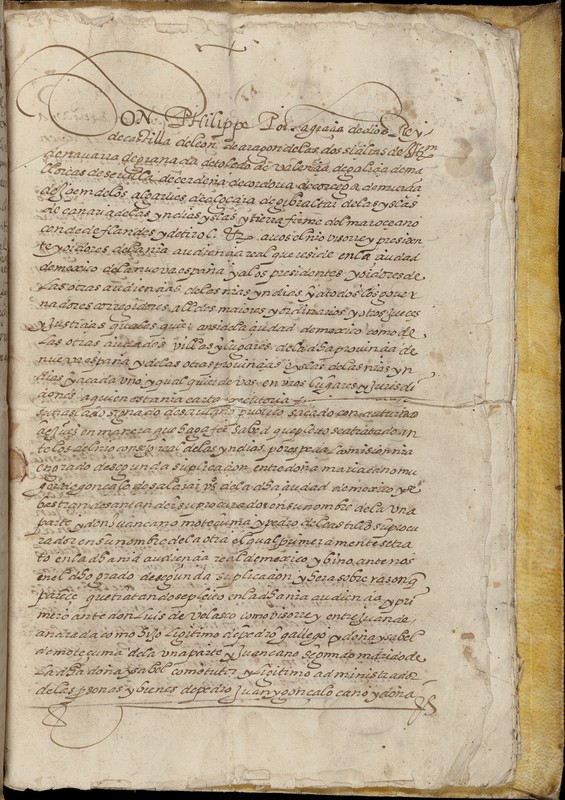 DON Philippe Por la graçia de dios Rey
de castilla de leon de aragon de las dos sicilias de Jhrlm
de navarra de granada de toledo de valençia de galiçia de ma
llorcas de sevilla de cerdeña de cordova de corçega de murcia
de Jaen de los algarves de algeçira de gibraltar de las yslas
de canaria de las yndias yslas y tierra firme del mar oceano
conde de flandes y de tirol & a vos el nro visorrey y presiden
te y oidores de la nra audiençia real que reside en la ciudad
de mexico de la nueva españa y a los presidentes y oidores de
las otras audiençias de las nras yndias y a todos los gover
nadores corregidores alldes maiores y ordinarios y otros jueces
y justiçias quales quier ansi de la çiudad de mexico como de
las otras çiudades villas y lugares de la dha provinçia de
nueva españa y de las otras provinçias e yslas de las nras yn
dias y a cada uno y qual quier de vos en vros lugares y jurisdi
çiones a quien esta nra carta executoria
su traslado signado de scrivano publico sacado con autoridad
de juez en manera que haga fee salud que pleito se a tratado an
te los del nro consejo real de las yndias por nra comision
en grado de segunda suplicaçion entre doña maria
gonçalo de salazar vº de la dha ciudad de mexico y
su procurador en su nombre de la una
parte y don juan cano moteçuma y pedro de su procu
rador en su nombre de la otra el qual primeramente se tra
to en la dha nra audiençia real de mexico y bino ante nos
en el dho grado de segunda suplicaçion y hera sobre razon q
pareçe que tratandose pleito en la dha nra audiençia y pri
mero ante don Luis de velasco como visorrey entre Juan de
andrada como hijo legitimo de pedro gallego y doña ysabel
de moteçuma de la una parte y Juan cano segundo marido de
la dha doña ysabel como tutor y legitimo administrador
de las psonas y bienes de pedro Juan y gonçalo cano y doña